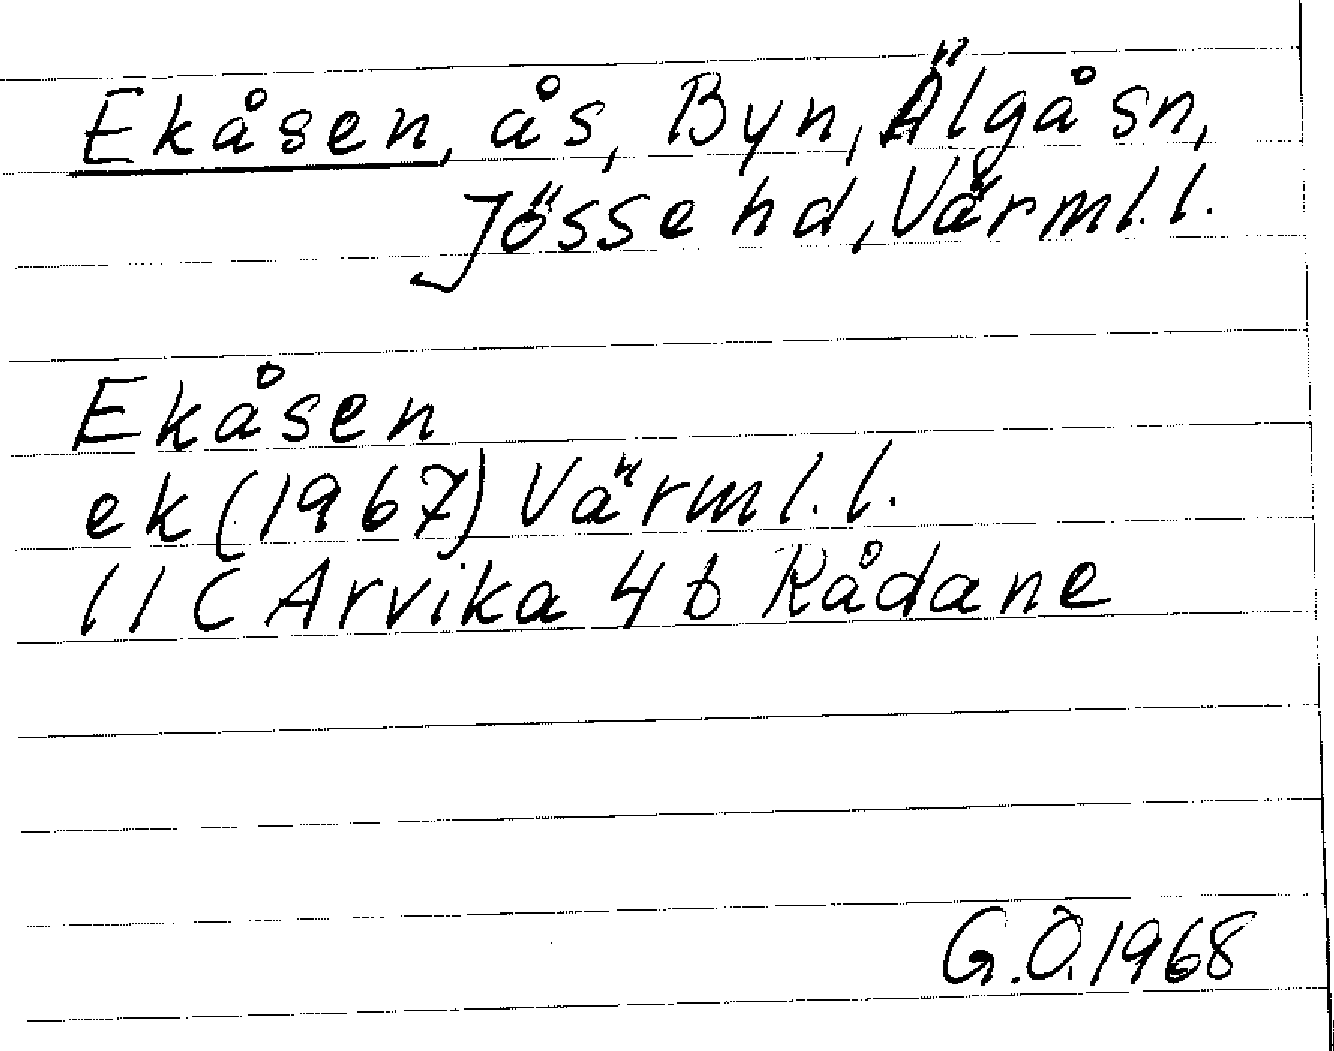 Ekåsen, ås, Byn, Älgå sn,
Jösse hd, Värml. l.
Ekåsen
ek (1967) Värml. l.
11 C Arvika 4 b Rådane
G.Ö. 1968